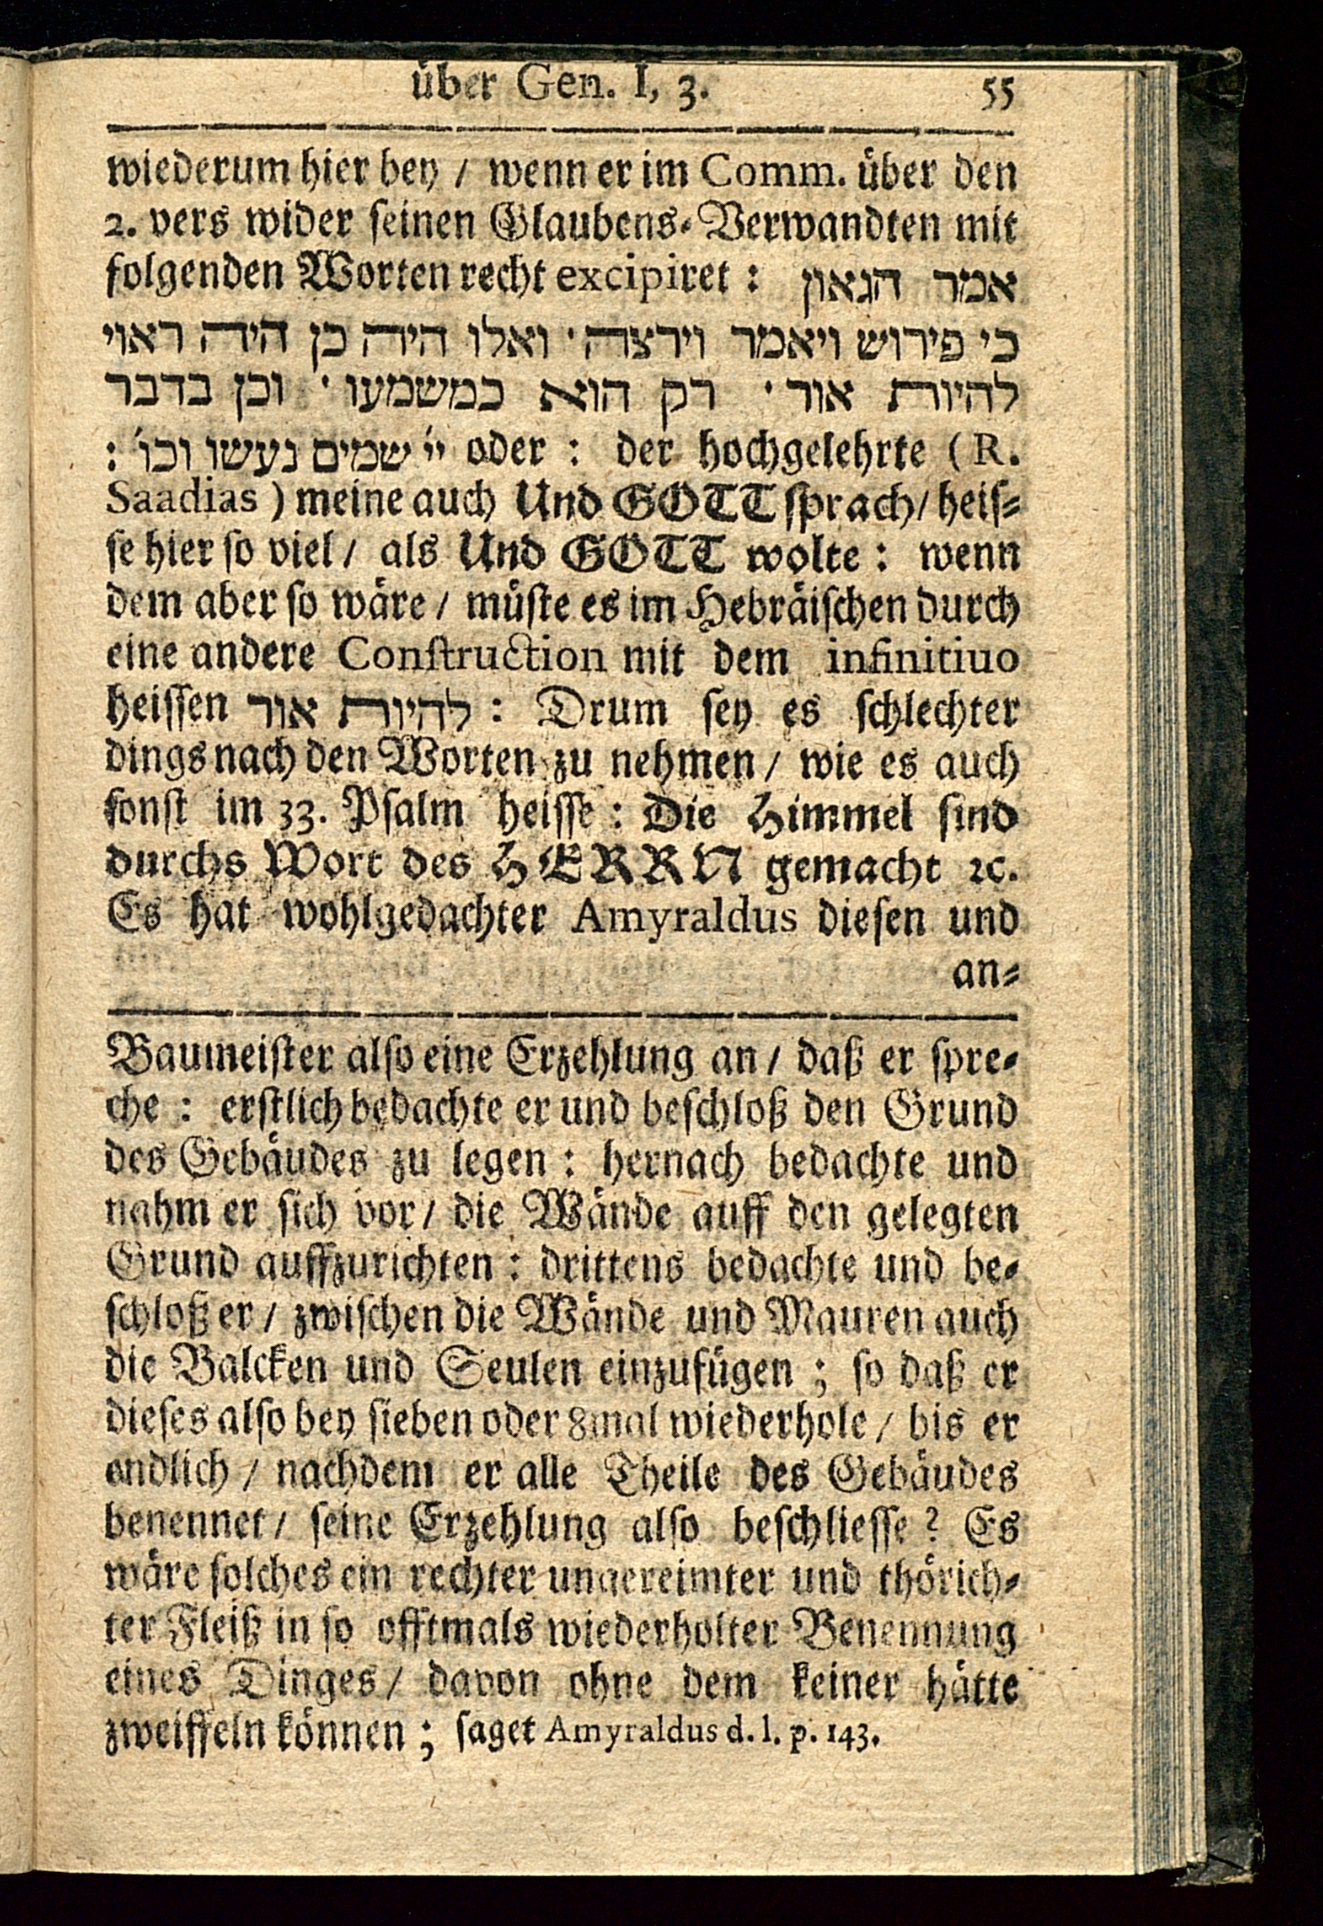 über Gen. I, 3. 55
wiederum hier bey / wenn er im Comm. über den
2. vers wider seinen Glaubens-Verwandten mit
folgenden Worten recht excipiret : אמר הגאון
כי פירוש ויאמר וירצה · ואלו היה כן היה ראוי
להיות אור · רק הוא כמשמעו · וכן בדבר
יי׳ שמים נעשו וכו׳ : oder : der hochgelehrte (R.
Saadias ) meine auch Und GOTT sprach / heis-
se hier so viel / als Und GOTT wolte : wenn
dem aber so wäre / müste es im Hebräischen durch
eine andere Construction mit dem infinitiuo
heissen להיות אור : Drum sey es schlechter
dings nach den Worten zu nehmen / wie es auch
sonst im 33. Psalm heisse : Die Himmel sind
durchs Wort des HERRN gemacht ꝛc.
Es hat wohlgedachter Amyraldus diesen und
an-
Baumeister also eine Erzehlung an / daß er spre-
che : erstlich bedachte er und beschloß den Grund
des Gebäudes zu legen : hernach bedachte und
nahm er sich vor / die Wände auff den gelegten
Grund auffzurichten : drittens bedachte und be-
schloß er / zwischen die Wände und Mauren auch
die Balcken und Seulen einzufügen ; so daß er
dieses also bey sieben oder 8mal wiederhole / bis er
endlich / nachdem er alle Theile des Gebäudes
benennet / seine Erzehlung also beschliesse ? Es
wäre solches ein rechter ungereimter und thörich-
ter Fleiß in so offtmals wiederholter Benennung
eines Dinges / davon ohne dem keiner hätte
zweiffeln können ; saget Amyraldus d. l. p. 143.